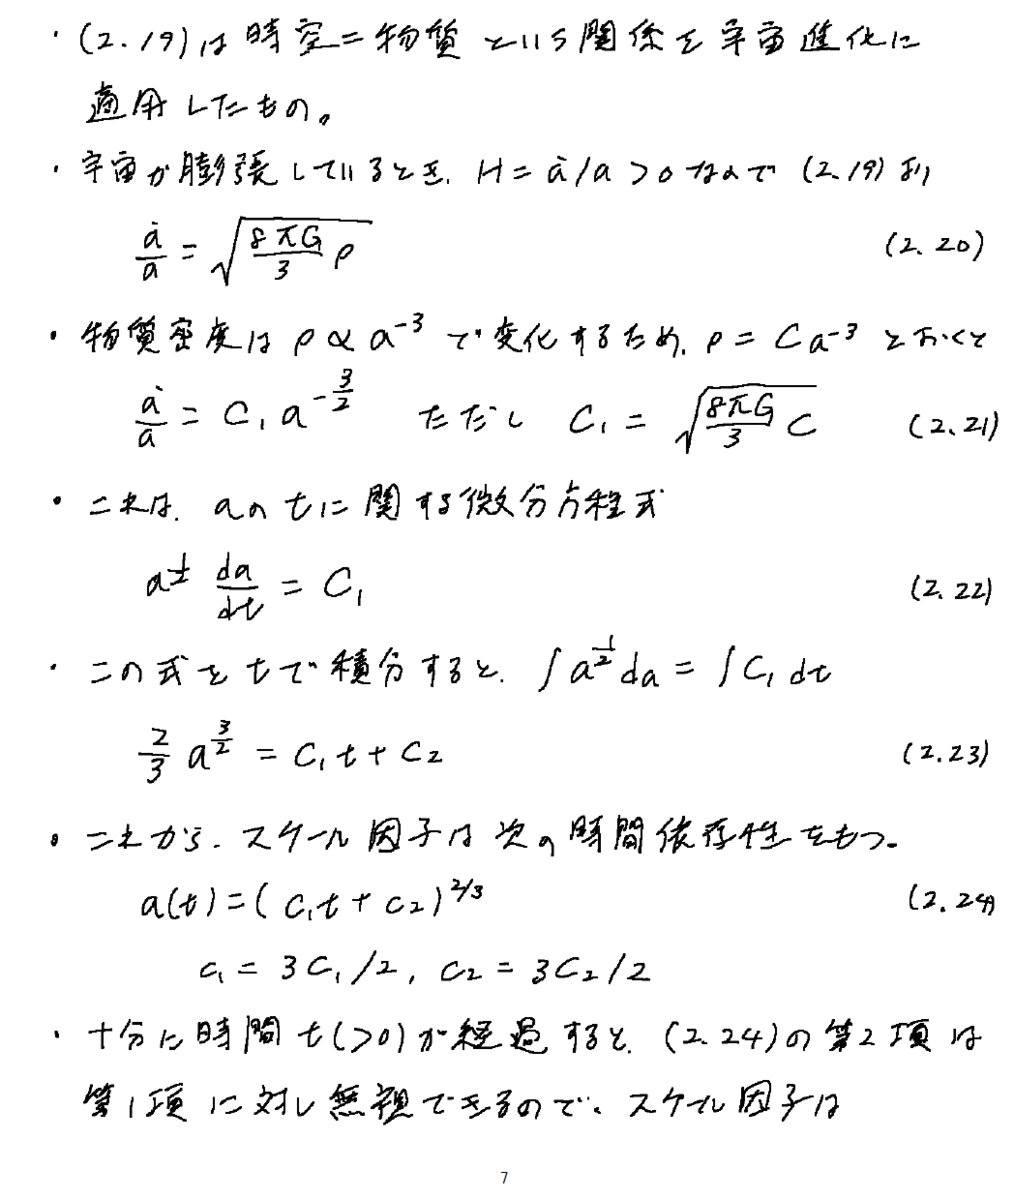 ・(2.19)は時空=物質という関係を宇宙進化に
適用したもの。
・宇宙が膨張しているとき、H = ȧ/a > 0 なので (2.19) より
ȧ/a = √(8πG/3 ρ) (2.20)
・物質密度は ρ ∝ a⁻³ で変化するため、ρ = Ca⁻³ とおくと
ȧ/a = C₁ a^(-3/2) ただし C₁ = √(8πG/3 C) (2.21)
・これは、aのtに関する微分方程式
a^(1/2) da/dt = C₁ (2.22)
・この式をtで積分すると、∫a^(1/2) da = ∫C₁ dt
2/3 a^(3/2) = C₁t + C₂ (2.23)
・これから、スケール因子は次の時間依存性をもつ。
a(t) = (c₁t + c₂)^(2/3) (2.24)
c₁ = 3C₁/2, c₂ = 3C₂/2
・十分に時間 t(>0) が経過すると、(2.24)の第2項は
第1項に対し無視できるので、スケール因子は
7